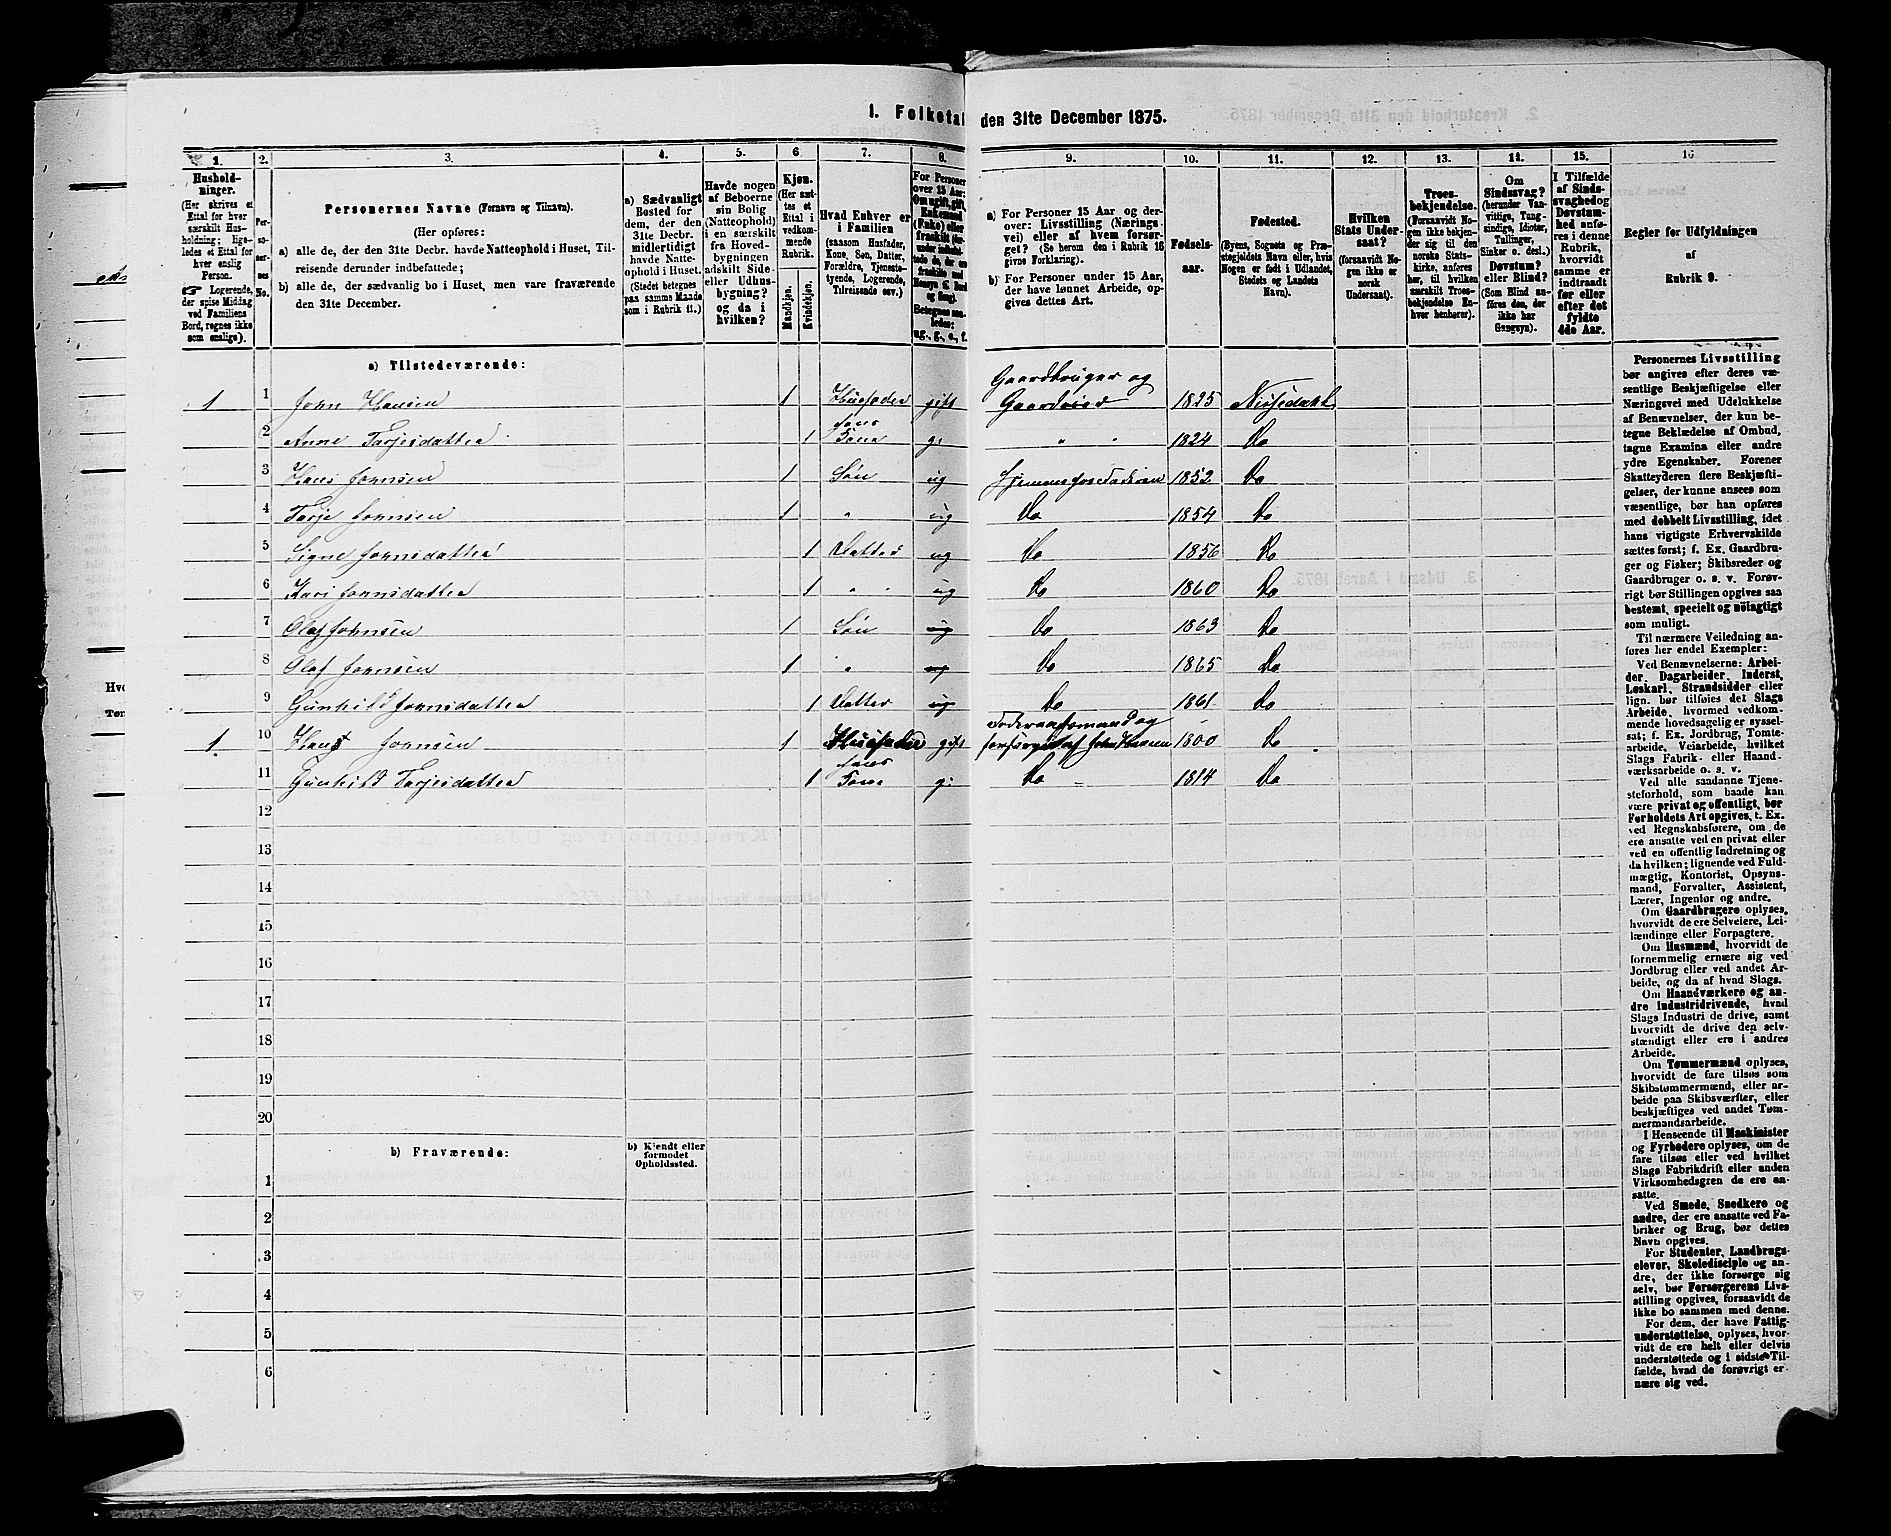 I. Folketal den 31te December 1875.
1. 2. 3. 4. 5. 6 7. 8. 9. 10. 11. 12. 13. 14. 15. 16
Hushold-
ninger.
(Her skrives et
Ettal for hver
særskilt Hus-
holdning; lige-
ledes et Ettal for
hver enslig
Person.
☞ Logerende,
der spise Middag
ved Familiens
Bord, regnes ikke
som enslige).
Per-
so-
ner-
nes
No.
Personernes Navne (Fornavn og Tilnavn).
(Her opføres:
a) alle de, der den 31te Decbr. havde Natteophold i Huset, Til-
reisende derunder indbefattede;
b) alle de, der sædvanlig bo i Huset, men vare fraværende
den 31te December.
a) Sædvanligt
Bosted for
dem, der den
31te Decbr.
midlertidigt
havde Natte-
ophold i Huset.
(Stedet betegnes
paa samme Maade
som i Rubrik 11.)
Havde nogen
af Beboerne
sin Bolig
(Natteophold)
i en særskilt
fra Hoved-
bygningen
adskilt Side-
eller Udhus-
bygning?
og da i
hvilken?
Kjøn.
(Her sæt-
tes et
Ettal i
vedkom-
mende
Rubrik.
Mandkjøn.
Kvindekjøn.
Hvad Enhver er
i Familien
(saasom Husfader,
Kone, Søn, Datter,
Forældre, Tjeneste-
tyende, Logerende,
Tilreisende osv.)
For Personer
over 15 Aar:
Om ugift, gift,
Enkemand
(Enke) eller
fraskilt
Betegnes saa-
ledes:
ug., g., e., f.
a) For Personer 15 Aar og der-
over: Livsstilling (Nærings-
vei) eller af hvem forsør-
get? (Se herom den i Rubrik 16
givne Forklaring).
b) For Personer under 15 Aar,
der have lønnet Arbeide, op-
gives dettes Art.
Fødsels-
aar.
Fødested.
(Byens, Sognets og Præ-
stegjeldets Navn eller, hvis
Nogen er født i Udlandet,
Stedets og Landets
Navn).
Hvilken
Stats Under-
saat?
(forsaavidt No-
gen ikke er
norsk
Undersaat).
Troes-
bekjendelse.
(Forsaavidt No-
gen ikke bekjen-
der sig til den
norske Stats-
kirke, anføres
her, til hvilken
særskilt Troes-
bekjendelse En-
hver henhører).
Om
Sindssvag?
(herunder Van-
vittige, Tung-
sindige, Idioter,
Tullinger,
Sinker o. desl.).
Døvstum?
eller Blind?
(Som Blind an-
føres den, der
ikke har
Gangsyn).
I Tilfælde
af Sinds-
svaghed og
Døvstum-
hed anfø-
res i denne
Rubrik,
hvorvidt
samme er
indtraadt
før eller
efter det
fyldte
4de Aar.
Regler for Udfyldningen
af
Rubrik 9.
a) Tilstedeværende:
Gaardbruger og
1 1 John Hansen 1 Husfader gift Gaardeier 1825 Nissedahl
2 Anne Tarjesdatter 1 hans Kone g: " " 1824 Do
3 Hans Johnsen 1 Søn ug Hjemme hos Faderen 1852 Do
4 Tarje Johnsen 1 " ug Do 1854 Do
5 Signe Johnsdatter 1 Datter ug Do 1856 Do
6 Kari Johnsdatter 1 " ug Do 1860 Do
7 Olaf Johnsen 1 Søn ug Do 1863 Do
8 Olaf Johnsen 1 " ug Do 1865 Do
9 Gunhild Johnsdatter 1 Datter ug Do 1861 Do
1. 10 Hans Johnsen 1 Husfader gift Føderaadsmand og
forsørget af John Hansen 1800 Do
11 Gunhild Tarjesdatter 1 hans Kone g: Do 1814 Do
12
13
14
15
16
17
18
19
20
b) Fraværende:
b) Kjendt eller
formodet
Opholdssted.
1
2
3
4
5
6
Personernes Livsstilling
bør angives efter deres væ-
sentlige Beskjæftigelse eller
Næringsvei med Udelukkelse
af Benævnelser, der kun be-
tegne Beklædelse af Ombud,
tagne Examina eller andre
ydre Egenskaber. Forener
Skatteyderen flere Beskjæfti-
gelser, der kunne ansees som
væsentlige, bør han opføres
med dobbelt Livsstilling, idet
hans vigtigste Erhvervskilde
sættes først; f. Ex. Gaardbru-
ger og Fisker; Skibsreder og
Gaardbruger o. s. v. Forøv-
rigt bør Stillingen opgives saa
bestemt, specielt og nøiagtigt
som muligt.
Til nærmere Veiledning an-
føres her endel Exempler:
Ved Benævnelserne: Arbei-
der, Dagarbeider, Inderst,
Løskarl, Strandsidder eller
lign. bør tilføies det Slags
Arbeide, hvormed vedkom-
mende hovedsagelig er syssel-
sat; f. Ex. Jordbrug, Tomte-
arbeide, Veiarbeide, hvilket
Slags Fabrik- eller Haand-
værksarbeide o. s. v.
Ved alle saadanne Tjene-
steforhold, som baade kan
være privat og offentligt, bør
Forholdets Art opgives, t. Ex.
ved Regnskabsførere, om de
ere ansatte ved en privat eller
ved en offentlig Indretning og
da hvilken; lignende ved Fuld-
mægtig, Kontorist, Opsyns-
mand, Forvalter, Assistent,
Lærer, Ingeniør og andre.
Om Gaardbrugere oplyses,
hvorvidt de ere Selveiere, Lei-
lændinge eller Forpagtere.
Om Husmænd, hvorvidt de
fornemmelig ernære sig ved
Jordbrug eller ved andet Ar-
beide, og da af hvad Slags.
Om Haandværkere og an-
dre Industridrivende, hvad
Slags Industri de drive, samt
hvorvidt de drive den selv-
stændigt eller ere i andres
Arbeide.
Om Tømmermænd oplyses,
hvorvidt de fare tilsøs som
Skibstømmermænd, eller ar-
beide paa Skibsværfter, eller
beskjæftiges ved andet Tøm-
mermandsarbeide.
I Henseende til Maskinister
og Fyrbødere oplyses, om de
fare tilsøs eller ved hvilket
Slags Fabrikdrift eller anden
Virksomhedsgren de ere an-
satte.
Ved Smede, Snedkere og
andre, der ere ansatte ved Fa-
briker og Brug, bør dettes
Navn opgives.
For Studenter, Landbrugs-
elever, Skoledisciple og an-
dre, der ikke forsørge sig
selv, bør Forsørgerens Livs-
stilling opgives, forsaavidt de
ikke bo sammen med denne.
For dem, der have Fattig-
understøttelse, oplyses, hvor-
vidt de ere helt eller delvis
understøttede og i sidste Til-
fælde, hvad de forøvrigt er-
nære sig ved.